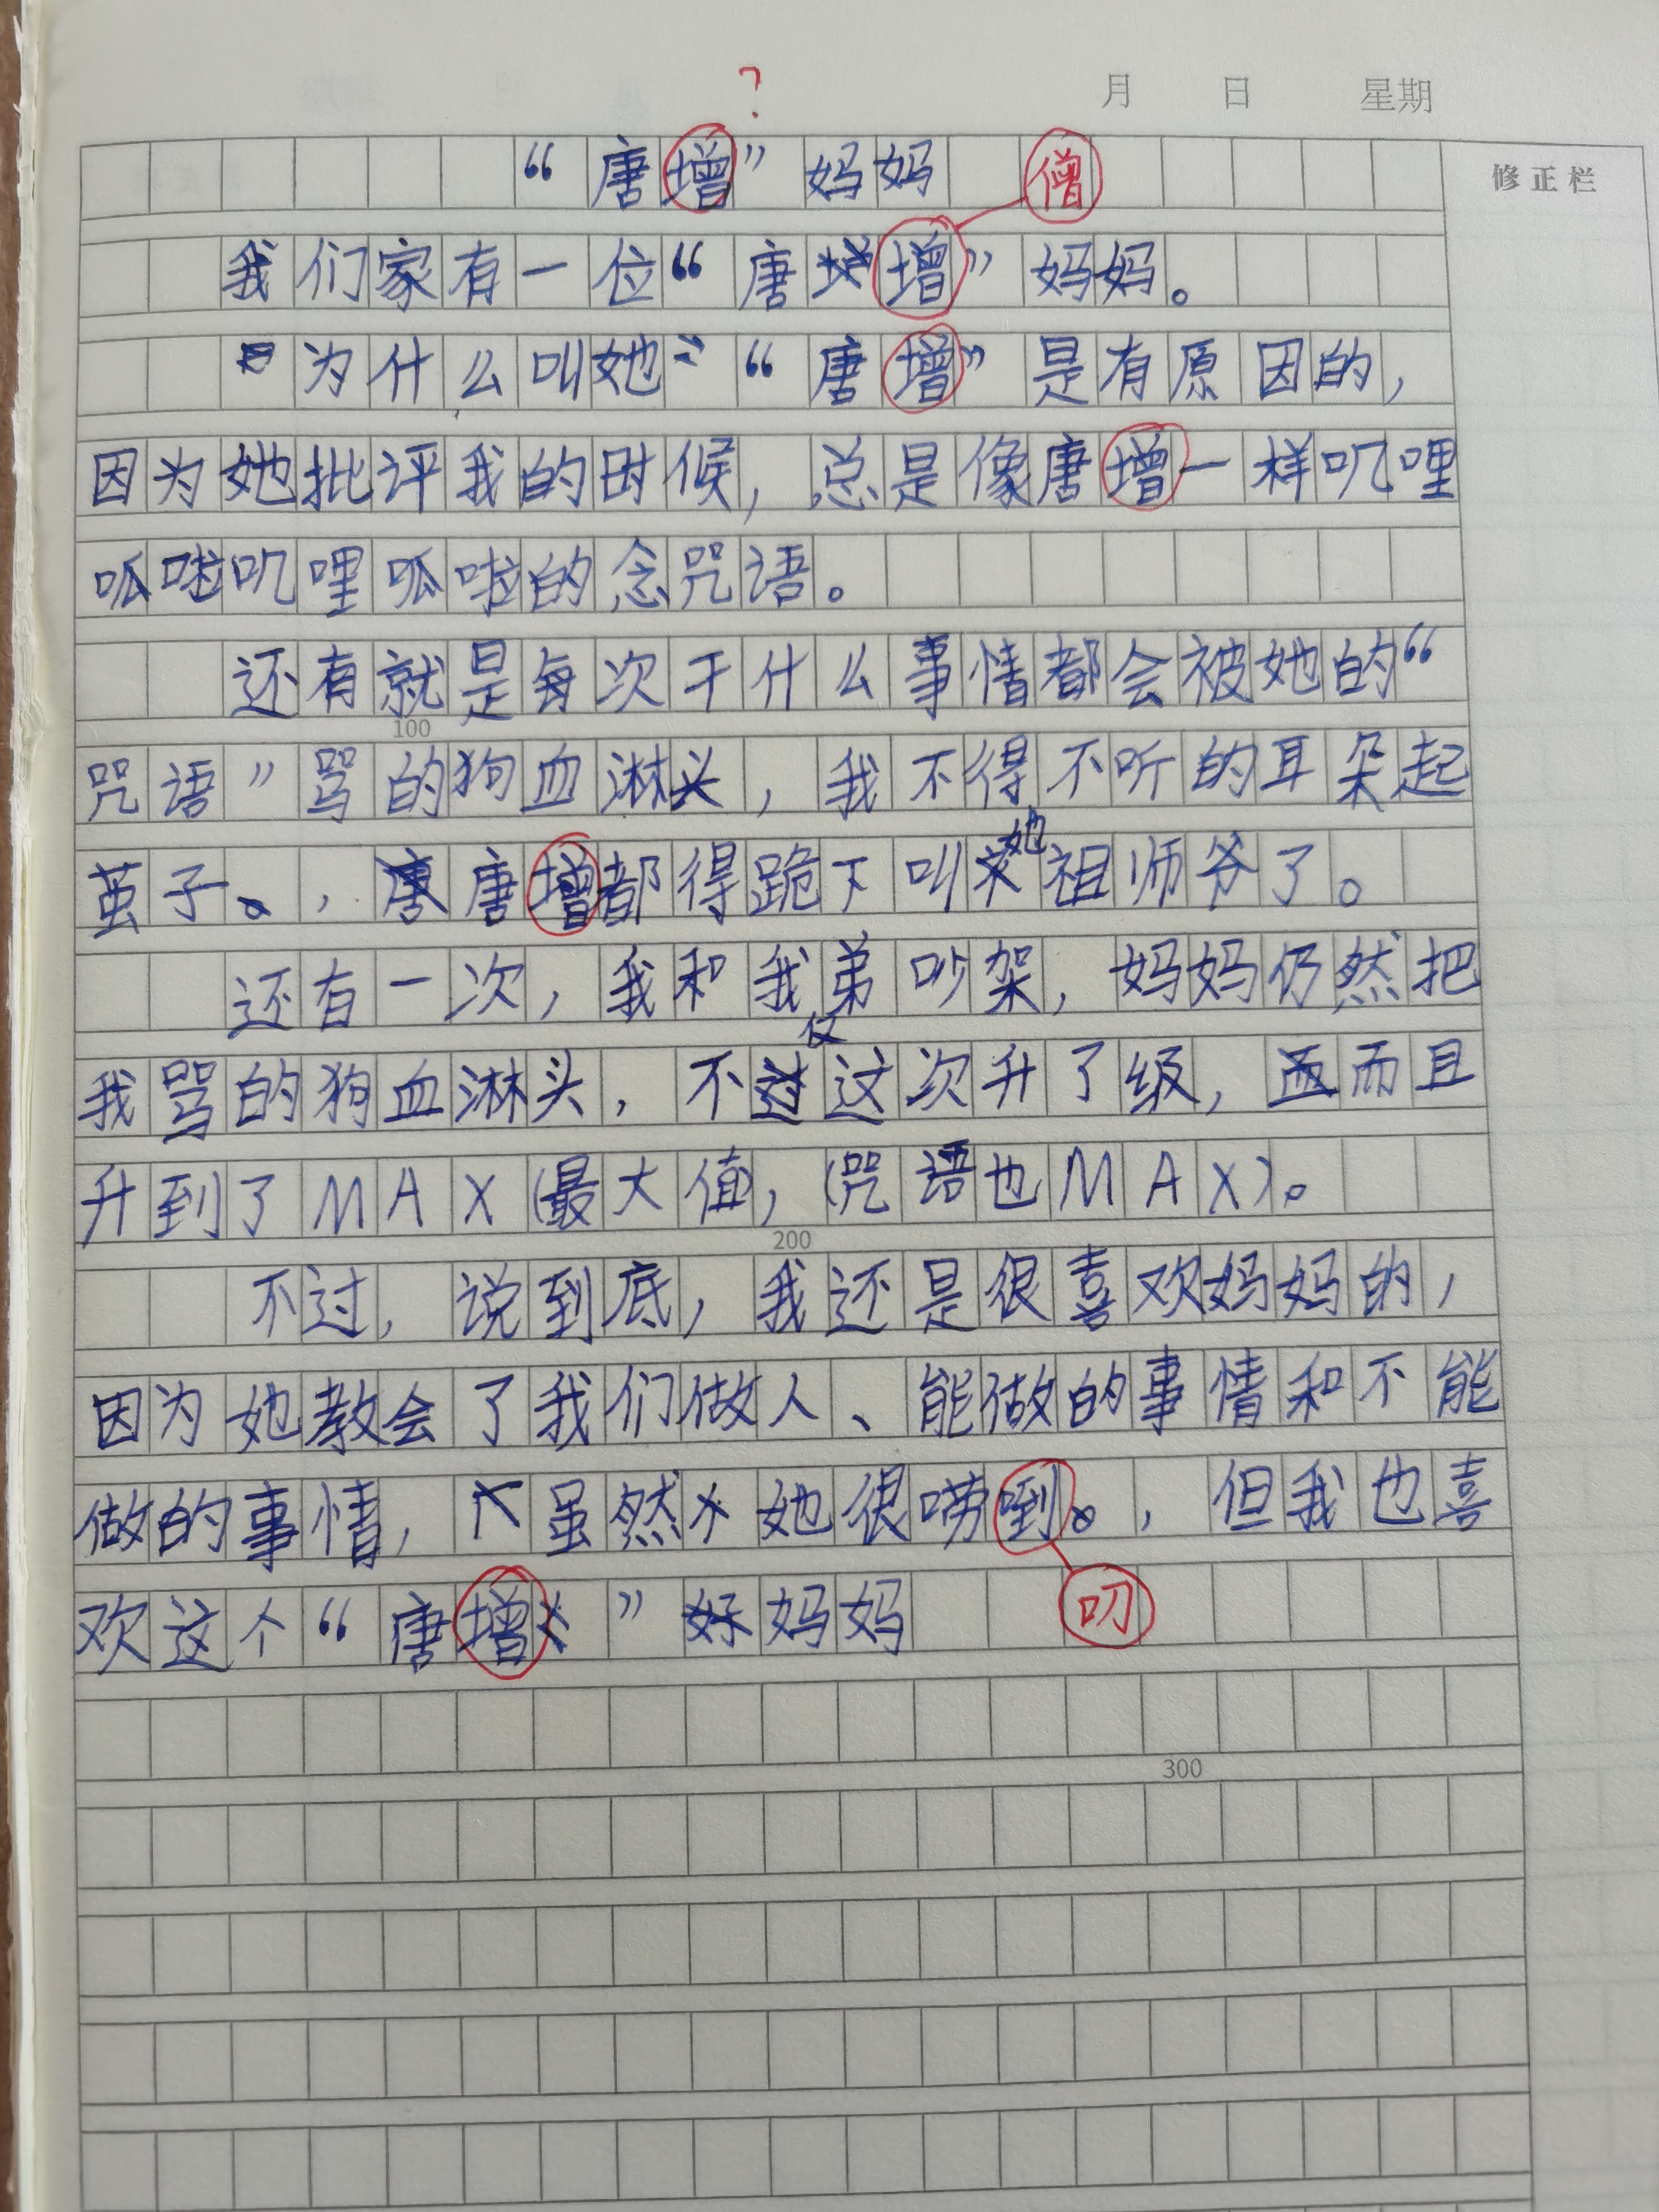 ?
月 日 星期
“唐增”妈妈 僧
修正栏
我们家有一位“唐增”妈妈。
为什么叫她“唐增”是有原因的，
因为她批评我的时候，总是像唐增一样叽哩
呱啦叽哩呱啦的念咒语。
还有就是每次干什么事情都会被她的“
100
咒语”骂的狗血淋头，我不得不听的耳朵起
茧子，唐增都得跪下叫她祖师爷了。
还有一次，我和我弟吵架，妈妈仍然把
我骂的狗血淋头，不仅这次升了级，而且
升到了MAX(最大值)，(咒语也MAX)。
200
不过，说到底，我还是很喜欢妈妈的，
因为她教会了我们做人、能做的事情和不能
做的事情，虽然她很唠唎，但我也喜
欢这个“唐增”妈妈
叨
300